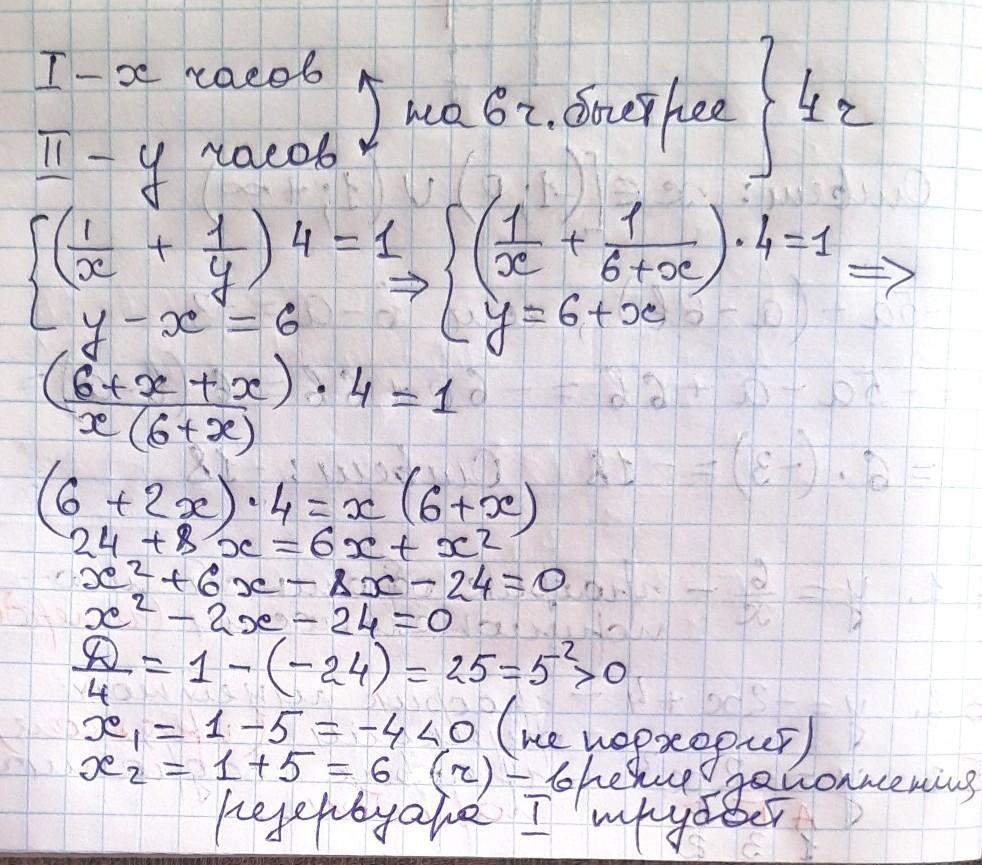 I – x часов
на 6 ч. быстрее } 4 ч
II – y часов
{ (1/x + 1/y) 4 = 1 ⇒ { (1/x + 1/(6+x)) · 4 = 1 ⇒
y – x = 6 y = 6 + x
((6 + x + x)/(x (6+x))) · 4 = 1
(6 + 2x) · 4 = x (6+x)
24 + 8x = 6x + x²
x² + 6x – 8x – 24 = 0
x² – 2x – 24 = 0
D/4 = 1 – (–24) = 25 = 5² > 0
x₁ = 1 – 5 = –4 < 0 (не подходит)
x₂ = 1 + 5 = 6 (ч) – время заполнения
резервуара I трубой